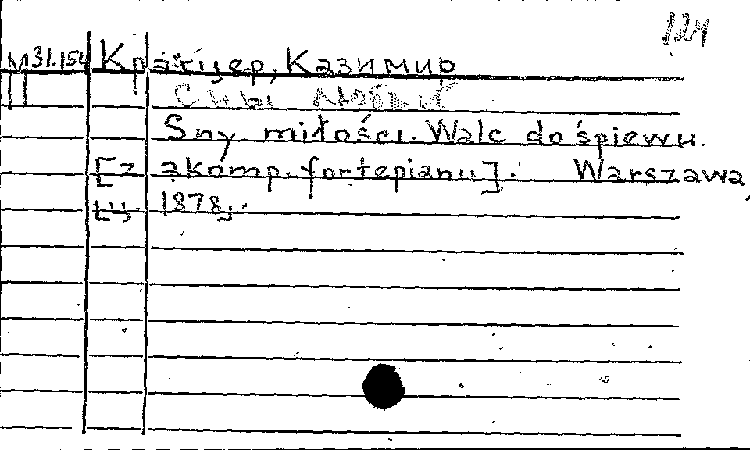 124
M 31.154 Кратцер, Казимир
Сны любви
Sny miłości. Walc do śpiewu.
[z akomp. fortepianu]. Warszawa,
1878,